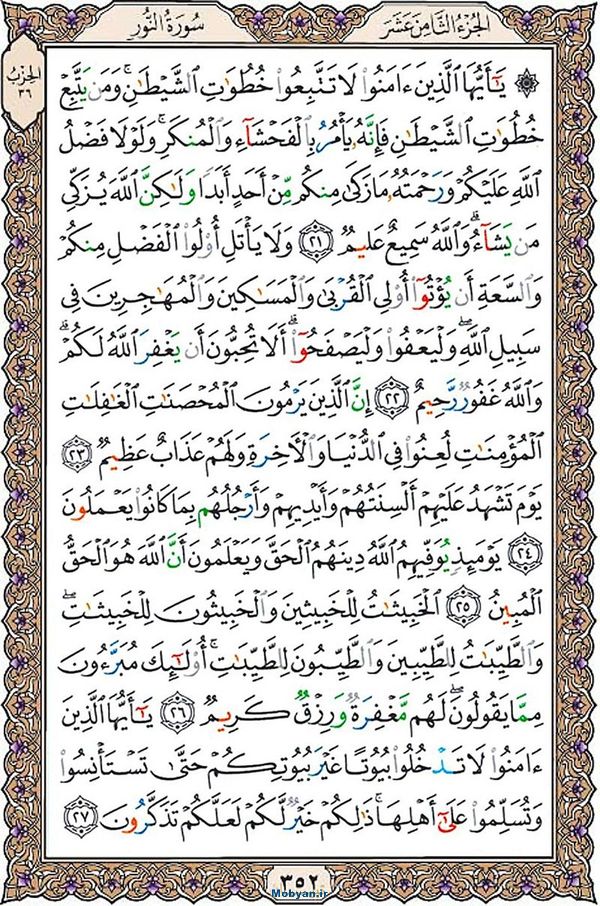 الجُزءُ الثَّامِن عَشَر
سُورَةُ النُّور
الحِزب
٣٦
۞ يَٰٓأَيُّهَا ٱلَّذِينَ ءَامَنُوا۟ لَا تَتَّبِعُوا۟ خُطُوَٰتِ ٱلشَّيْطَٰنِ ۚ وَمَن يَتَّبِعْ
خُطُوَٰتِ ٱلشَّيْطَٰنِ فَإِنَّهُۥ يَأْمُرُ بِٱلْفَحْشَآءِ وَٱلْمُنكَرِ ۚ وَلَوْلَا فَضْلُ
ٱللَّهِ عَلَيْكُمْ وَرَحْمَتُهُۥ مَا زَكَىٰ مِنكُم مِّنْ أَحَدٍ أَبَدًا وَلَٰكِنَّ ٱللَّهَ يُزَكِّى
مَن يَشَآءُ ۗ وَٱللَّهُ سَمِيعٌ عَلِيمٌ ﴿٢١﴾ وَلَا يَأْتَلِ أُو۟لُوا۟ ٱلْفَضْلِ مِنكُمْ
وَٱلسَّعَةِ أَن يُؤْتُوٓا۟ أُو۟لِى ٱلْقُرْبَىٰ وَٱلْمَسَٰكِينَ وَٱلْمُهَٰجِرِينَ فِى
سَبِيلِ ٱللَّهِ ۖ وَلْيَعْفُوا۟ وَلْيَصْفَحُوٓا۟ ۗ أَلَا تُحِبُّونَ أَن يَغْفِرَ ٱللَّهُ لَكُمْ ۗ
وَٱللَّهُ غَفُورٌ رَّحِيمٌ ﴿٢٢﴾ إِنَّ ٱلَّذِينَ يَرْمُونَ ٱلْمُحْصَنَٰتِ ٱلْغَٰفِلَٰتِ
ٱلْمُؤْمِنَٰتِ لُعِنُوا۟ فِى ٱلدُّنْيَا وَٱلْءَاخِرَةِ وَلَهُمْ عَذَابٌ عَظِيمٌ ﴿٢٣﴾
يَوْمَ تَشْهَدُ عَلَيْهِمْ أَلْسِنَتُهُمْ وَأَيْدِيهِمْ وَأَرْجُلُهُم بِمَا كَانُوا۟ يَعْمَلُونَ
﴿٢٤﴾ يَوْمَئِذٍ يُوَفِّيهِمُ ٱللَّهُ دِينَهُمُ ٱلْحَقَّ وَيَعْلَمُونَ أَنَّ ٱللَّهَ هُوَ ٱلْحَقُّ
ٱلْمُبِينُ ﴿٢٥﴾ ٱلْخَبِيثَٰتُ لِلْخَبِيثِينَ وَٱلْخَبِيثُونَ لِلْخَبِيثَٰتِ ۖ
وَٱلطَّيِّبَٰتُ لِلطَّيِّبِينَ وَٱلطَّيِّبُونَ لِلطَّيِّبَٰتِ ۚ أُو۟لَٰٓئِكَ مُبَرَّءُونَ
مِمَّا يَقُولُونَ ۖ لَهُم مَّغْفِرَةٌ وَرِزْقٌ كَرِيمٌ ﴿٢٦﴾ يَٰٓأَيُّهَا ٱلَّذِينَ
ءَامَنُوا۟ لَا تَدْخُلُوا۟ بُيُوتًا غَيْرَ بُيُوتِكُمْ حَتَّىٰ تَسْتَأْنِسُوا۟
وَتُسَلِّمُوا۟ عَلَىٰٓ أَهْلِهَا ۚ ذَٰلِكُمْ خَيْرٌ لَّكُمْ لَعَلَّكُمْ تَذَكَّرُونَ ﴿٢٧﴾
٣٥٢
Mobyan.ir